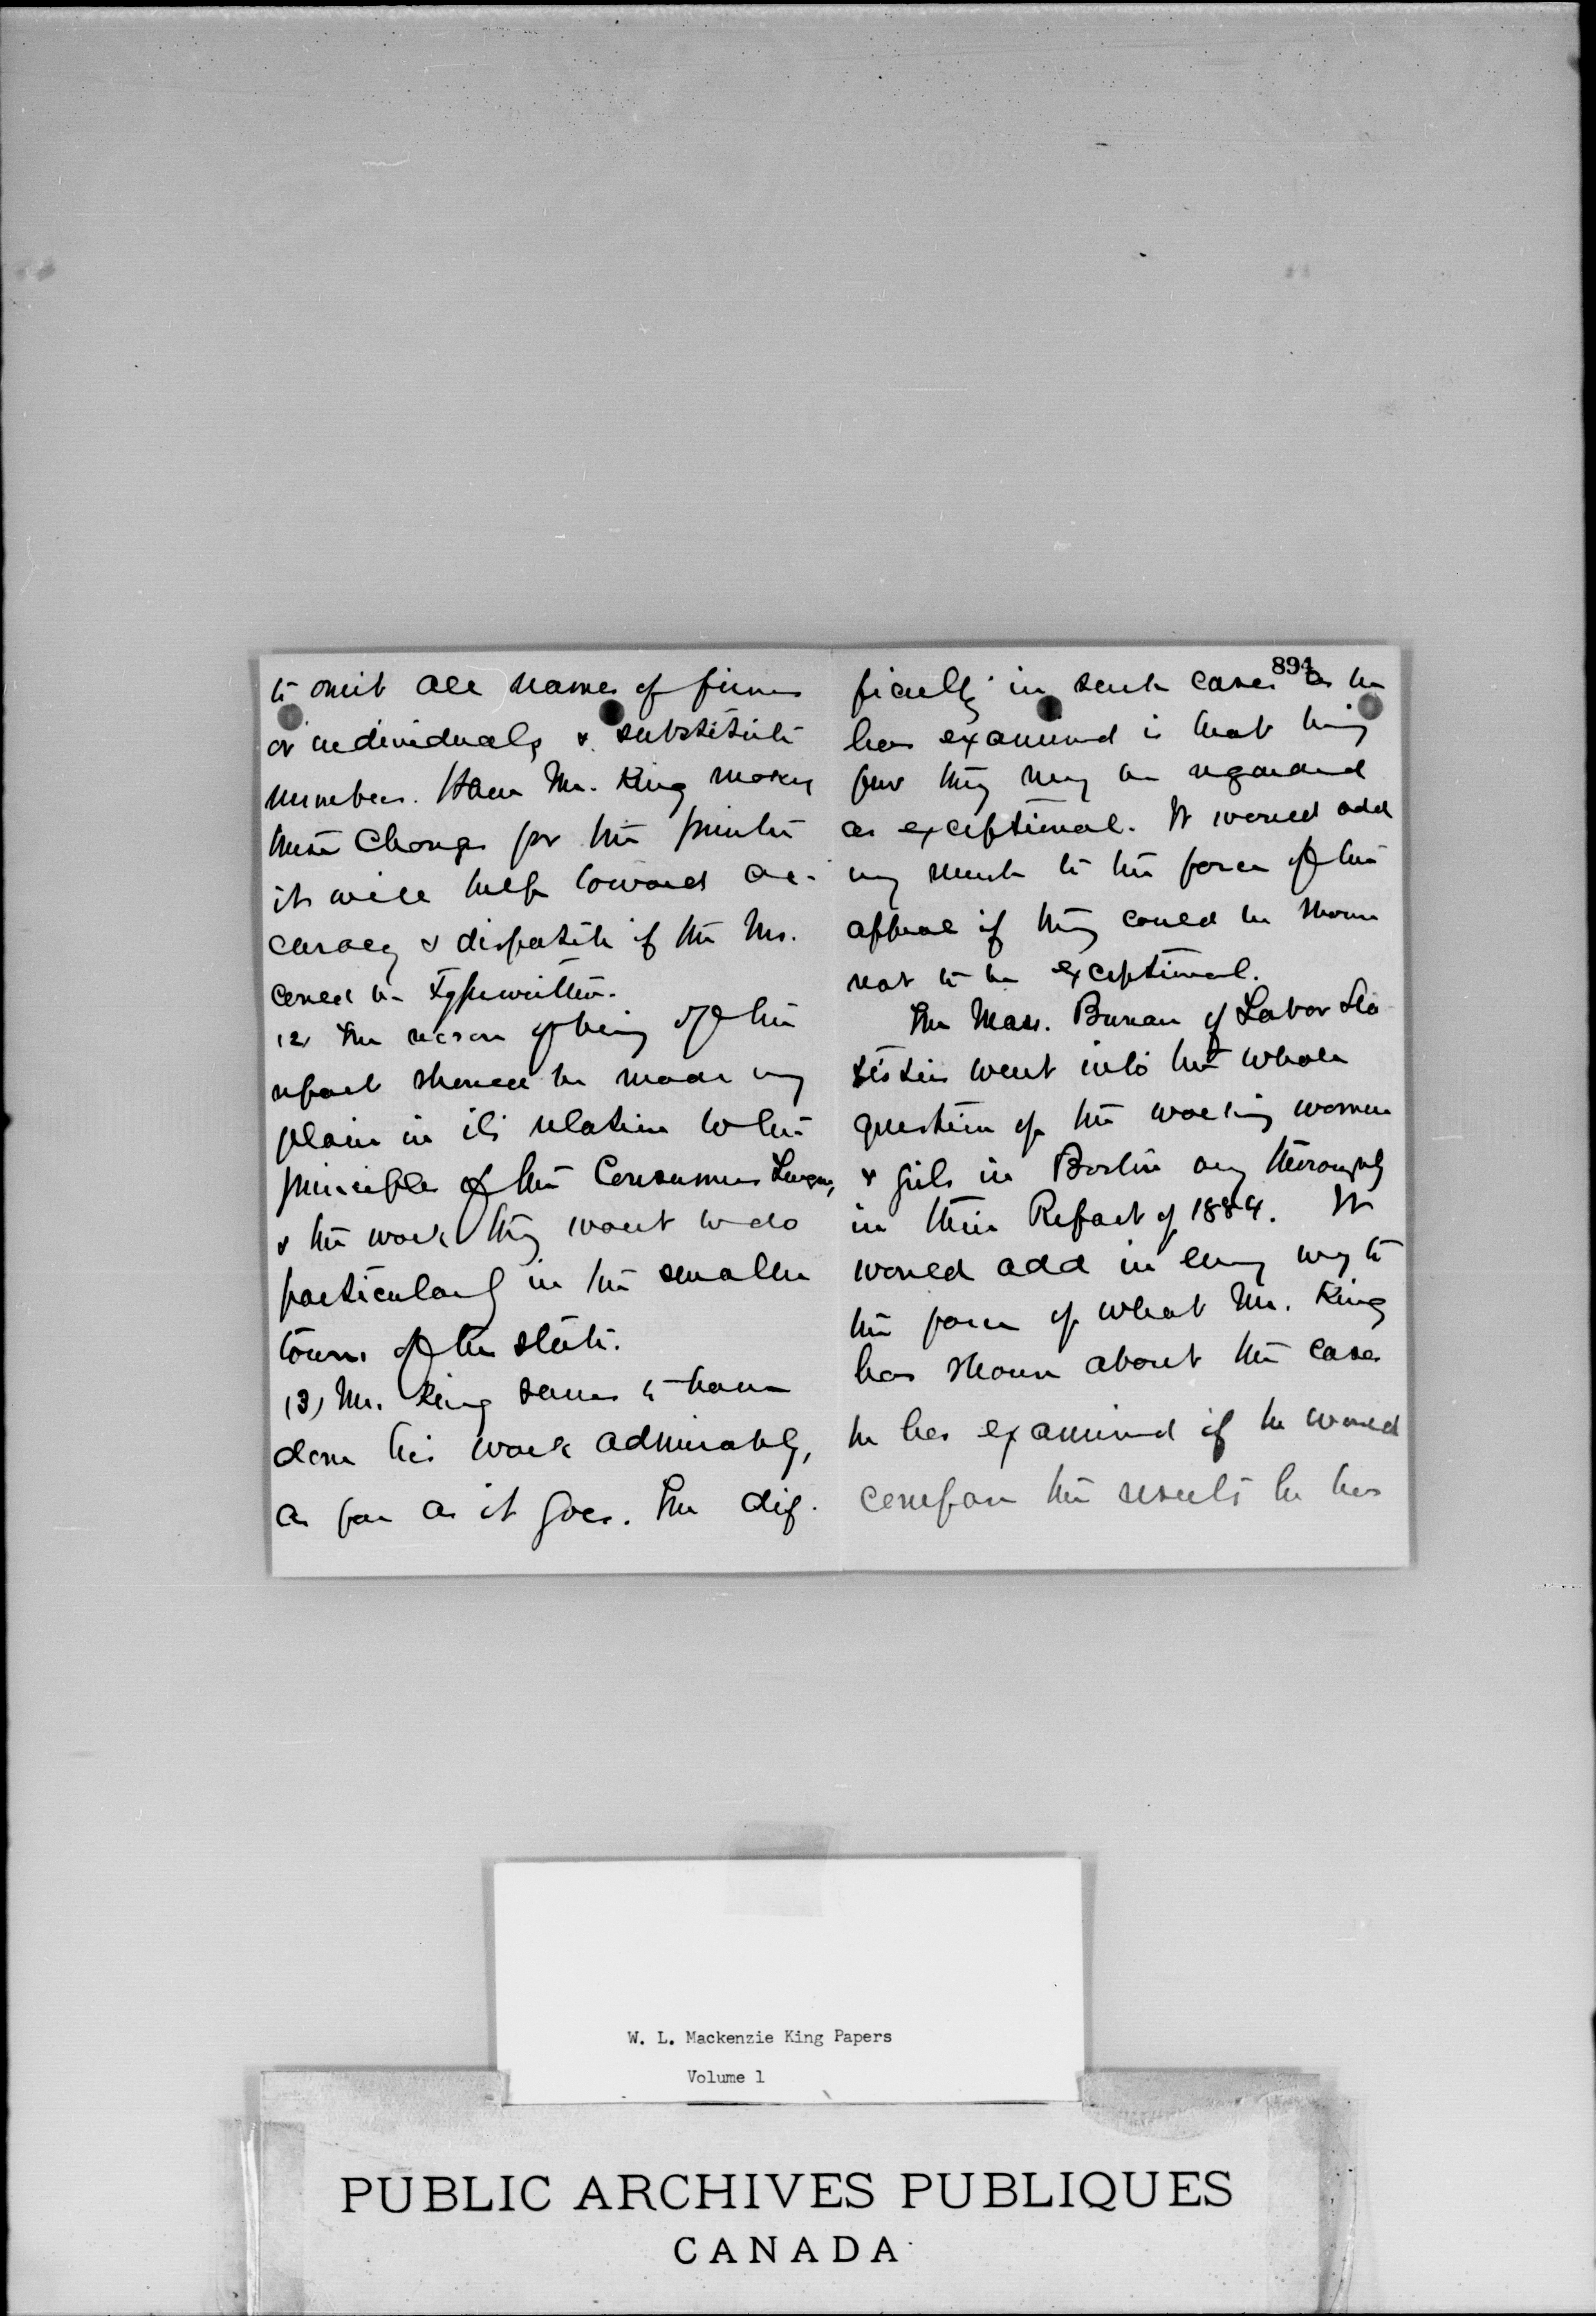 to omit all names of firms
or individuals, & substitute
numbers. When Mr. King makes
these changes for the printer
it will help toward ac-
curacy & dispatch if the Ms.
could be typewritten.
(2) The reason of being of the
report should be made very
plain in its relation to the
principles of the Consumers League,
& the work they want to do
particularly in the smaller
towns of the state.
(3) Mr. King seems to have
done his work admirably,
as far as it goes. The dif-
894
ficulty in such cases as he
has examined is that being
few they may be regarded
as exceptional. It would add
very much to the force of the
appeal if they could be shown
not to be exceptional.
The Mass. Bureau of Labor Sta
tistics went into the whole
question of the working women
& girls in Boston very thoroughly
in their Report of 1884. It
would add in every way to
the force of what Mr. King
has shown about the cases
he has examined if he would
compare the results he has
W. L. Mackenzie King Papers
Volume 1
PUBLIC ARCHIVES PUBLIQUES
CANADA